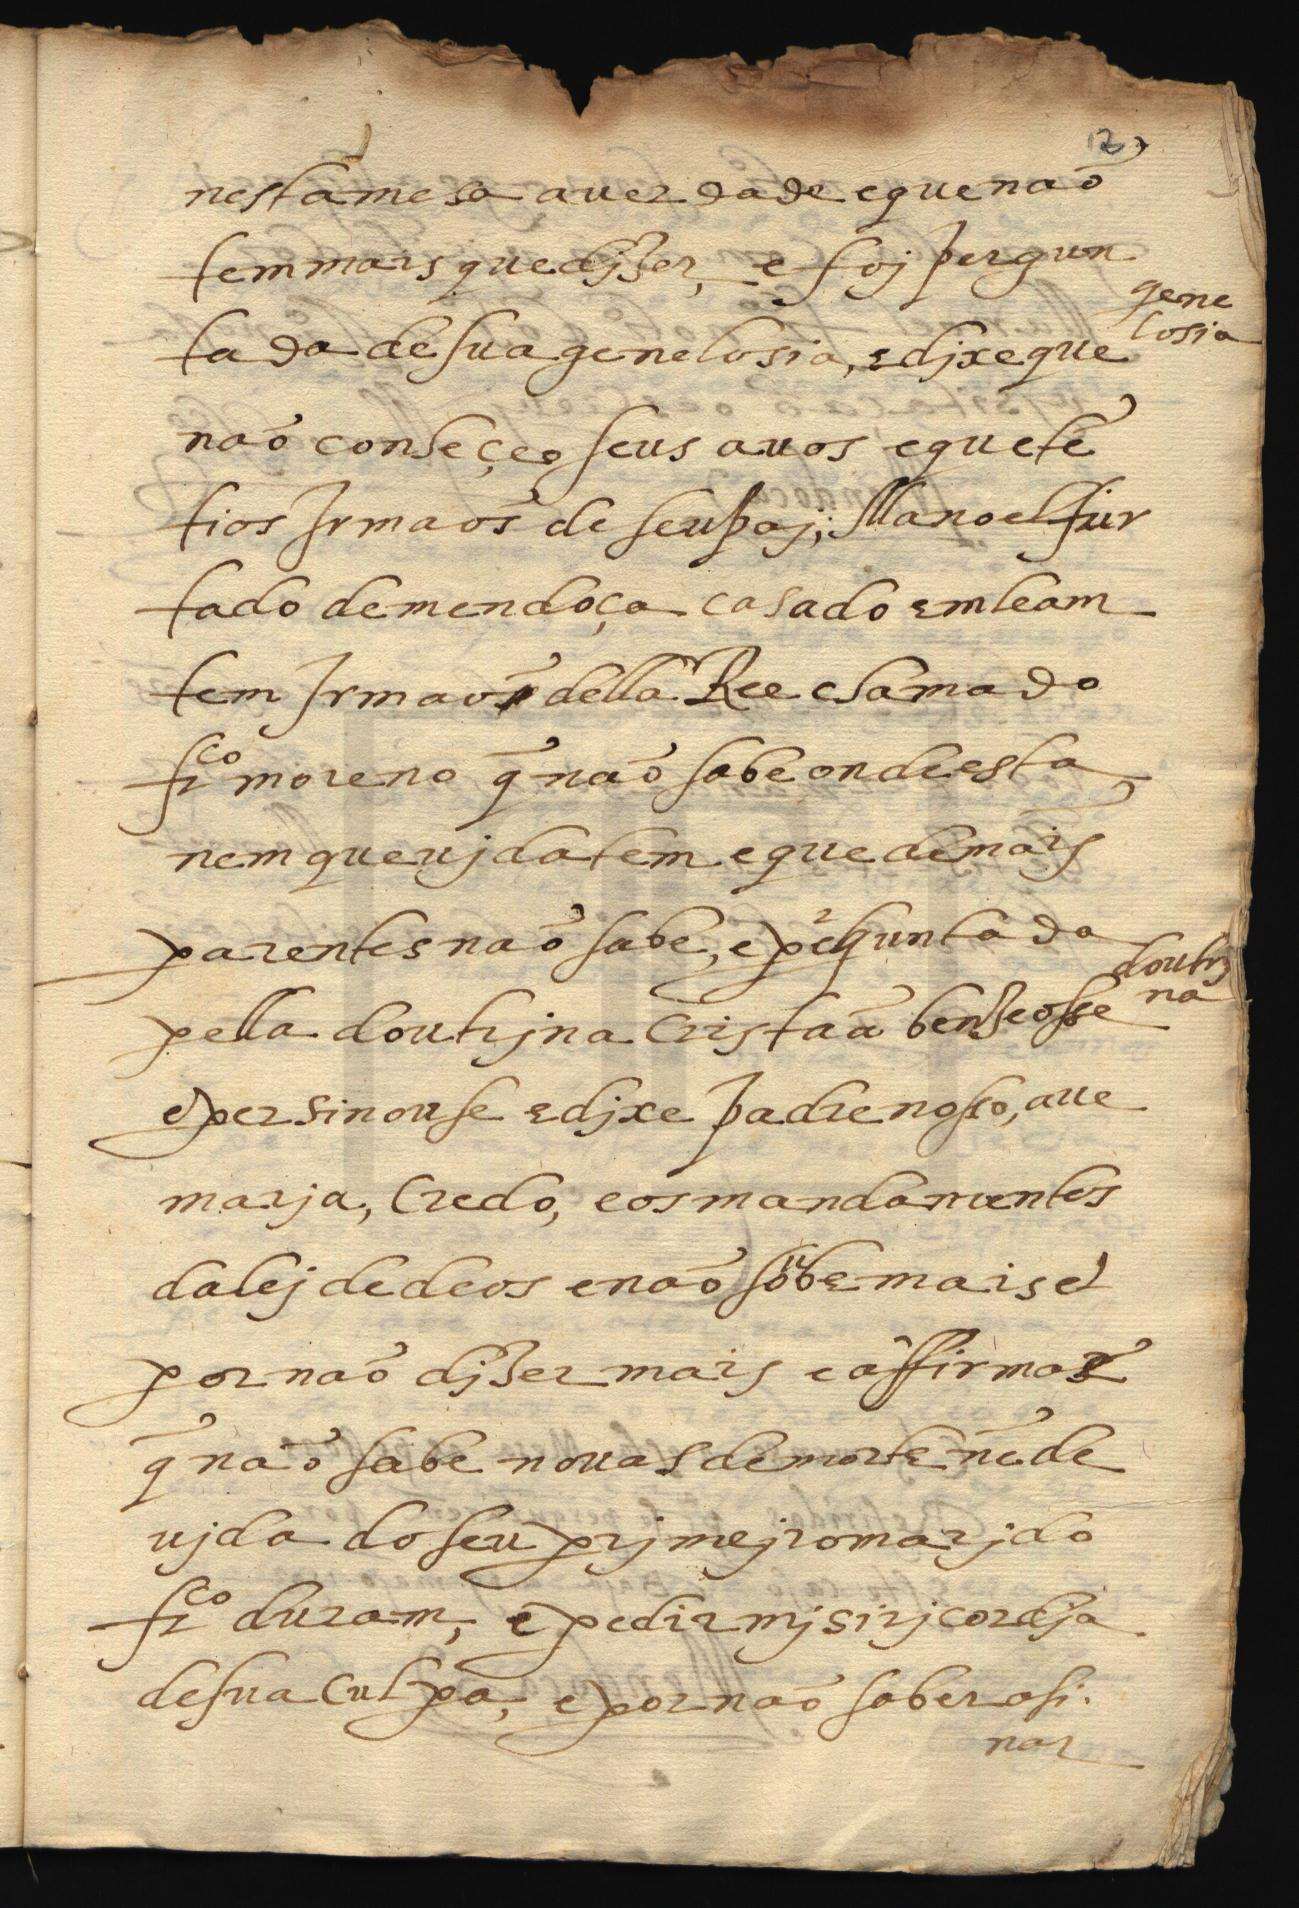 12
nesta mesa a uerdade e que naõ
tem mais que dizer, e foj pergun
gene
losia
tada de sua genelosia, e djxe que
naõ conheçeo seus auos e que tẽ
tios Irmaõs de seu paj, Manoel fur
tado de mendoça casado em leam
tem Irmaõ della Ree chamado
frco moreno q̃ naõ sabe onde esta
nem que ujda tem e que de mais
parentes naõ sabe, e perguntada
doutrj
na
pella doutrjna cristaã benzeosse
e persinouse e djxe padre nosso, aue
marja, Credo, e os mandamentos
da lej de deos e naõ soube mais e
por naõ djzer mais e affirmar
q̃ naõ sabe nouas de morte nẽ de
ujda do seu prjmejro marjdo
frco duram, e pedir mjsirjcordja
de sua culpa, e por naõ saber asi.
nar